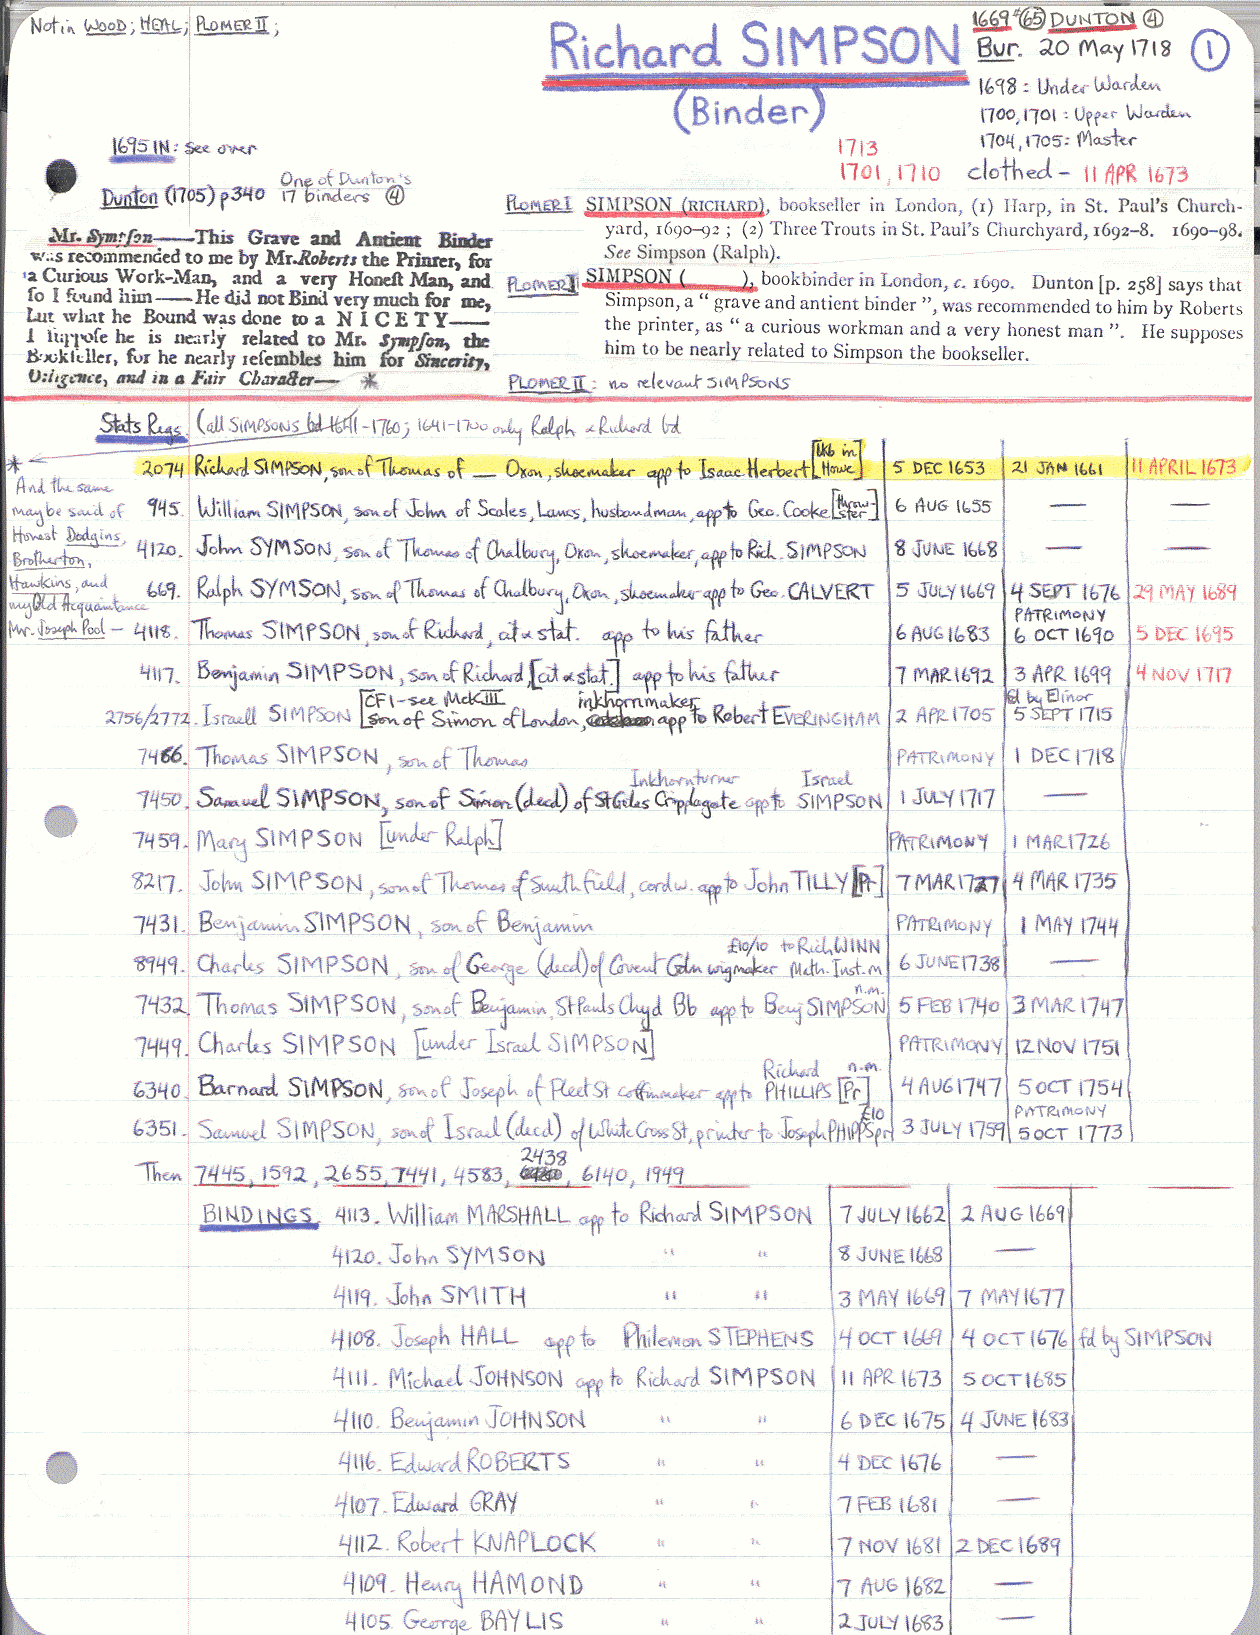 Not in WOOD; HEAL; PLOMER II;
Richard SIMPSON
(Binder)
1669 #65 DUNTON ④
Bur. 20 May 1718 ①
1698: Under Warden
1700, 1701: Upper Warden
1704, 1705: Master
1713
1701, 1710
clothed - 11 APR 1673
1695 IN: see over
Dunton (1705) p340 One of Dunton's 17 binders ④
Mr. Sympson——This Grave and Antient Binder
was recommended to me by Mr. Roberts the Printer, for
a Curious Work-Man, and a very Honest Man, and
so I found him——He did not Bind very much for me,
but what he Bound was done to a NICETY——
I suppose he is nearly related to Mr. Sympson, the
Bookseller, for he nearly resembles him for Sincerity,
Diligence, and in a Fair Character— *
PLOMER I SIMPSON (RICHARD), bookseller in London, (1) Harp, in St. Paul's Church-
yard, 1690–92; (2) Three Trouts in St. Paul's Churchyard, 1692–8. 1690–98.
See Simpson (Ralph).
PLOMER I SIMPSON ( ), bookbinder in London, c. 1690. Dunton [p. 258] says that
Simpson, a “ grave and antient binder ”, was recommended to him by Roberts
the printer, as “ a curious workman and a very honest man ”. He supposes
him to be nearly related to Simpson the bookseller.
PLOMER II: no relevant SIMPSONS
Stats Regs. (all SIMPSONS bd 1641-1760; 1641-1700 only Ralph & Richard bd
*
And the same
may be said of
Honest Dodgins,
Brotherton,
Hawkins, and
my Old Acquaintance
Mr. Joseph Pool —
2074 Richard SIMPSON, son of Thomas of — Oxon, shoemaker app to Isaac Herbert [bkb in Howe 5 DEC 1653 21 JAN 1661 11 APRIL 1673
945. William SIMPSON, son of John of Scales, Lancs, husbandman, app to Geo. Cooke [throwster] 6 AUG 1655 — —
4120. John SYMSON, son of Thomas of Chalbury, Oxon, shoemaker, app to Rich. SIMPSON 8 JUNE 1668 — —
669. Ralph SYMSON, son of Thomas of Chalbury, Oxon, shoemaker app to Geo. CALVERT 5 JULY 1669 4 SEPT 1676 29 MAY 1689
4118. Thomas SIMPSON, son of Richard, cit & stat. app to his father 6 AUG 1683 PATRIMONY 6 OCT 1690 5 DEC 1695
4117. Benjamin SIMPSON, son of Richard, [cit & stat.] app to his father 7 MAR 1692 3 APR 1699 4 NOV 1717
2756/2772. Israell SIMPSON [CF1 - see McK III son of Simon of London, inkhornmaker app to Robert EVERINGHAM 2 APR 1705 fd by Elinor 5 SEPT 1715
7466. Thomas SIMPSON, son of Thomas PATRIMONY 1 DEC 1718
7450. Samuel SIMPSON, son of Simon (decd) of St Giles Cripplegate Inkhornturner app to Israel SIMPSON 1 JULY 1717 —
7459. Mary SIMPSON [under Ralph] PATRIMONY 1 MAR 1726
8217. John SIMPSON, son of Thomas of Smithfield, cordw. app to John TILLY [Pr] 7 MAR 1727 4 MAR 1735
7431. Benjamin SIMPSON, son of Benjamin PATRIMONY 1 MAY 1744
8949. Charles SIMPSON, son of George (decd) of Covent Gdn wigmaker £10/10 to Rich WINN Math. Inst. m 6 JUNE 1738 —
7432 Thomas SIMPSON, son of Benjamin, St Pauls Chyd Bb app to Benj SIMPSON n.m. 5 FEB 1740 3 MAR 1747
7449. Charles SIMPSON [under Israel SIMPSON] PATRIMONY 12 NOV 1751
6340. Barnard SIMPSON, son of Joseph of Fleet St coffinmaker app to Richard PHILLIPS [Pr] n.m. 4 AUG 1747 5 OCT 1754
6351. Samuel SIMPSON, son of Israel (decd) of White Cross St, printer to Joseph PHIPPS pr £10 3 JULY 1759 PATRIMONY 5 OCT 1773
Then 7445, 1592, 2655, 7441, 4583, 2438, 6140, 1949
BINDINGS 4113. William MARSHALL app to Richard SIMPSON 7 JULY 1662 2 AUG 1669
4120. John SYMSON " " 8 JUNE 1668 —
4119. John SMITH " " 3 MAY 1669 7 MAY 1677
4108. Joseph HALL app to Philemon STEPHENS 4 OCT 1669 4 OCT 1676 fd by SIMPSON
4111. Michael JOHNSON app to Richard SIMPSON 11 APR 1673 5 OCT 1685
4110. Benjamin JOHNSON " " 6 DEC 1675 4 JUNE 1683
4116. Edward ROBERTS " " 4 DEC 1676 —
4107. Edward GRAY " " 7 FEB 1681 —
4112. Robert KNAPLOCK " " 7 NOV 1681 2 DEC 1689
4109. Henry HAMOND " " 7 AUG 1682 —
4105. George BAYLIS " " 2 JULY 1683 —